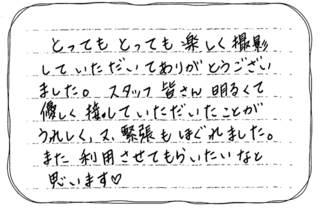 とっても とっても 楽しく撮影
していただいてありがとうござい
ました。スタッフ皆さん 明るくて
優しく接していただいたことが
うれしく、緊張もほぐれました。
また利用させてもらいたいなと
思います♡